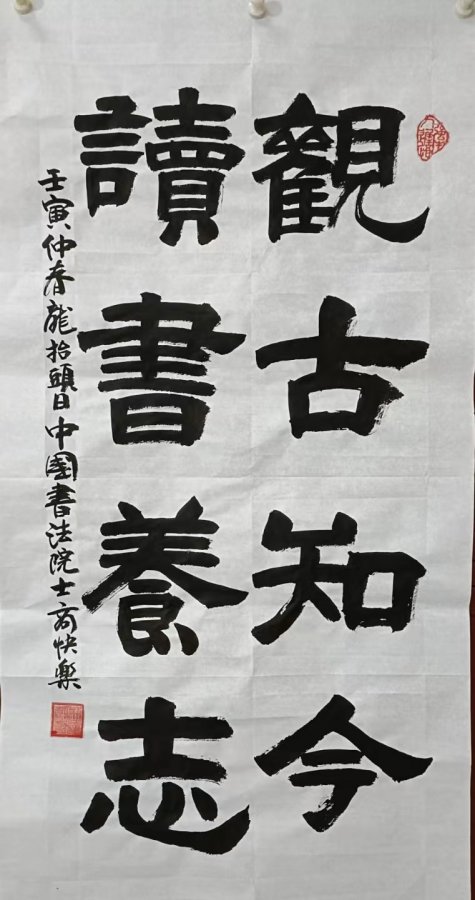 觀古知今
讀書養志
壬寅仲春龍抬頭日中國書法院士商快樂